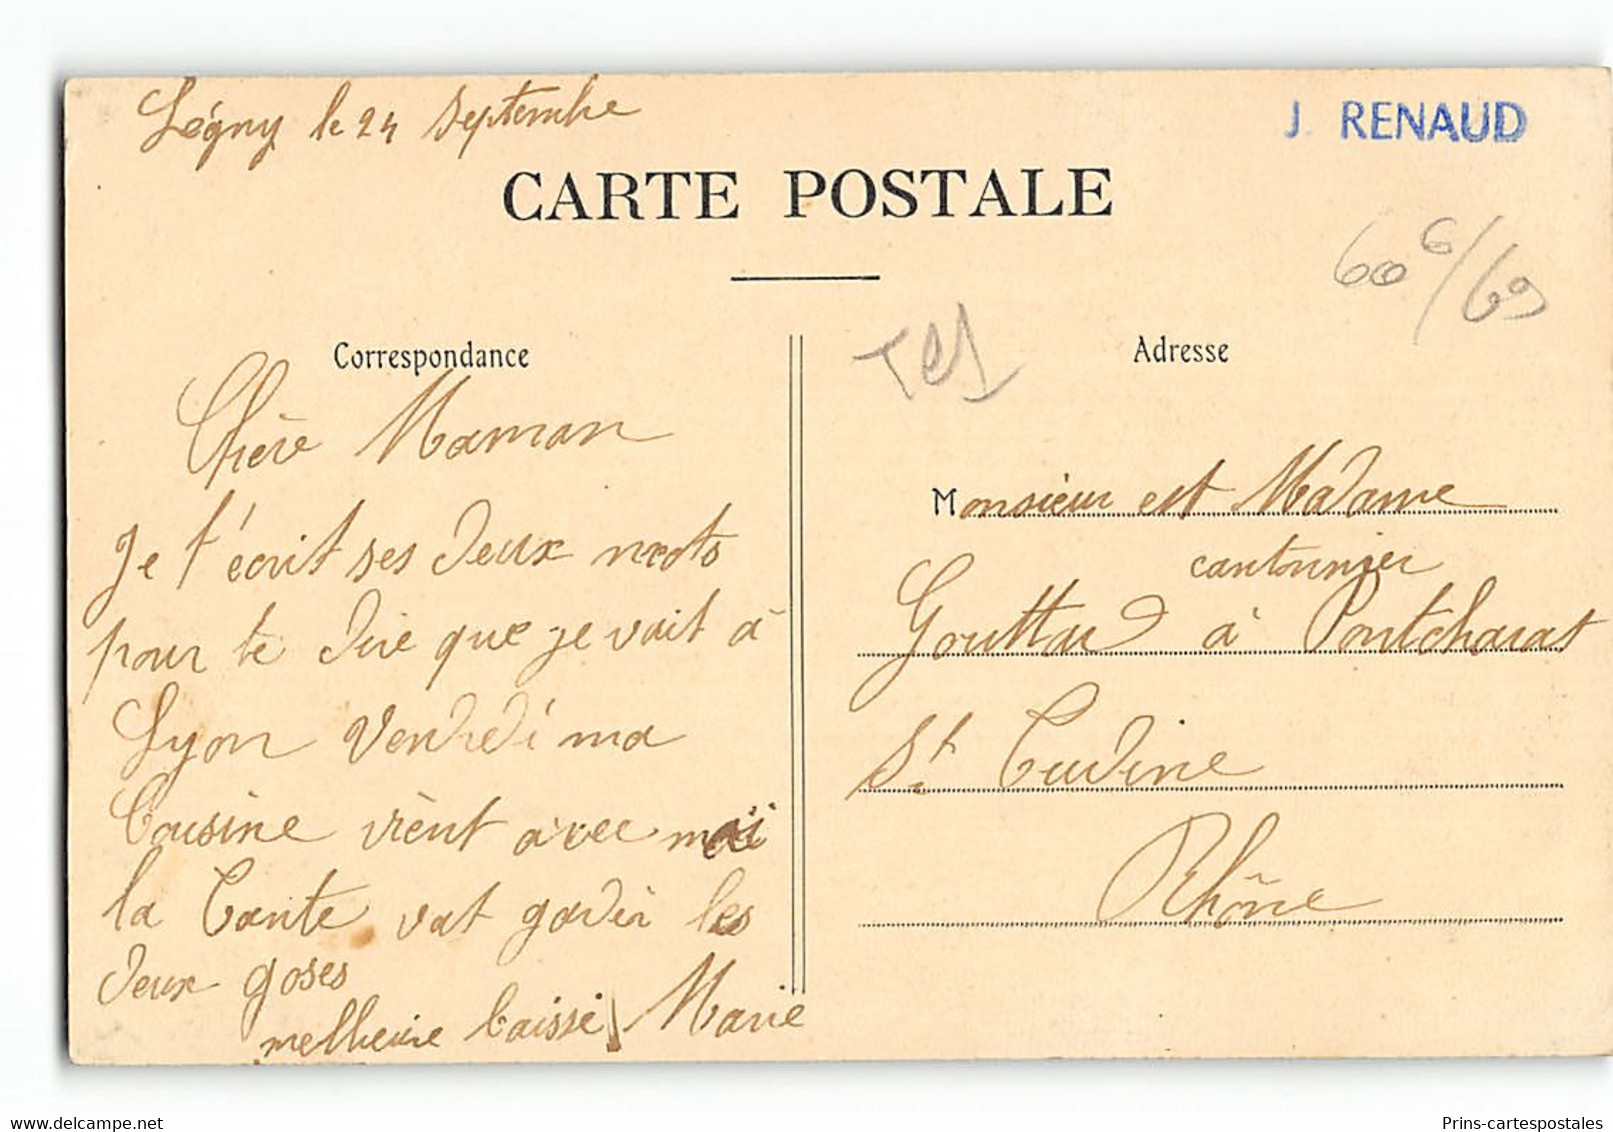 Légny le 24 Septembre
J. RENAUD
CARTE POSTALE
60 6/69
TCS
Correspondance
Adresse
Chère Maman
Je t'écrit ses deux mots
pour te dire que je vait à
Lyon Vendredi ma
Cousine vient avec moi
la Tante vat gadér les
deux goses
melheure baisse Marie
Monsieur est Madame
cantonnier
Gouttard à Pontcharat
St Cudine
Rhône
Prins-cartespostales